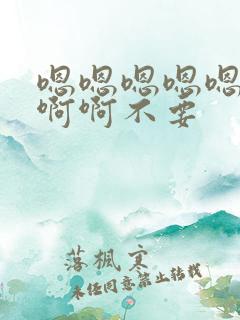 嗯嗯嗯嗯嗯
啊啊不要
落楓寒
未经同意禁止转载